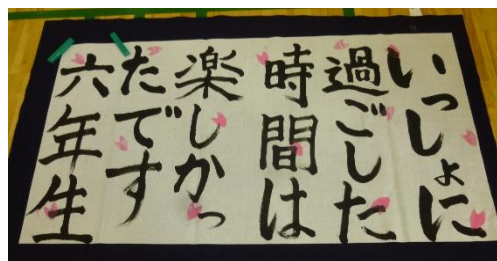 いっしょに
過ごした
時間は
楽しかっ
たです
六年生